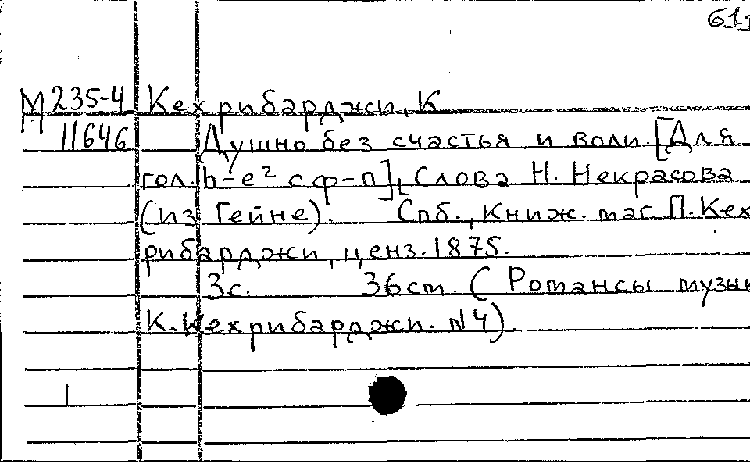 611
М 235-4 Кехрибарджи, К
11646 Душно без счастья и воли [Для
гол. h-e² с ф-п], Слова Н. Некрасова
(из Гейне). Спб., Книж. маг. П. Кех
рибарджи, ценз. 1875.
3с. 36 см (Романсы музык
К. Кехрибарджи. №4).